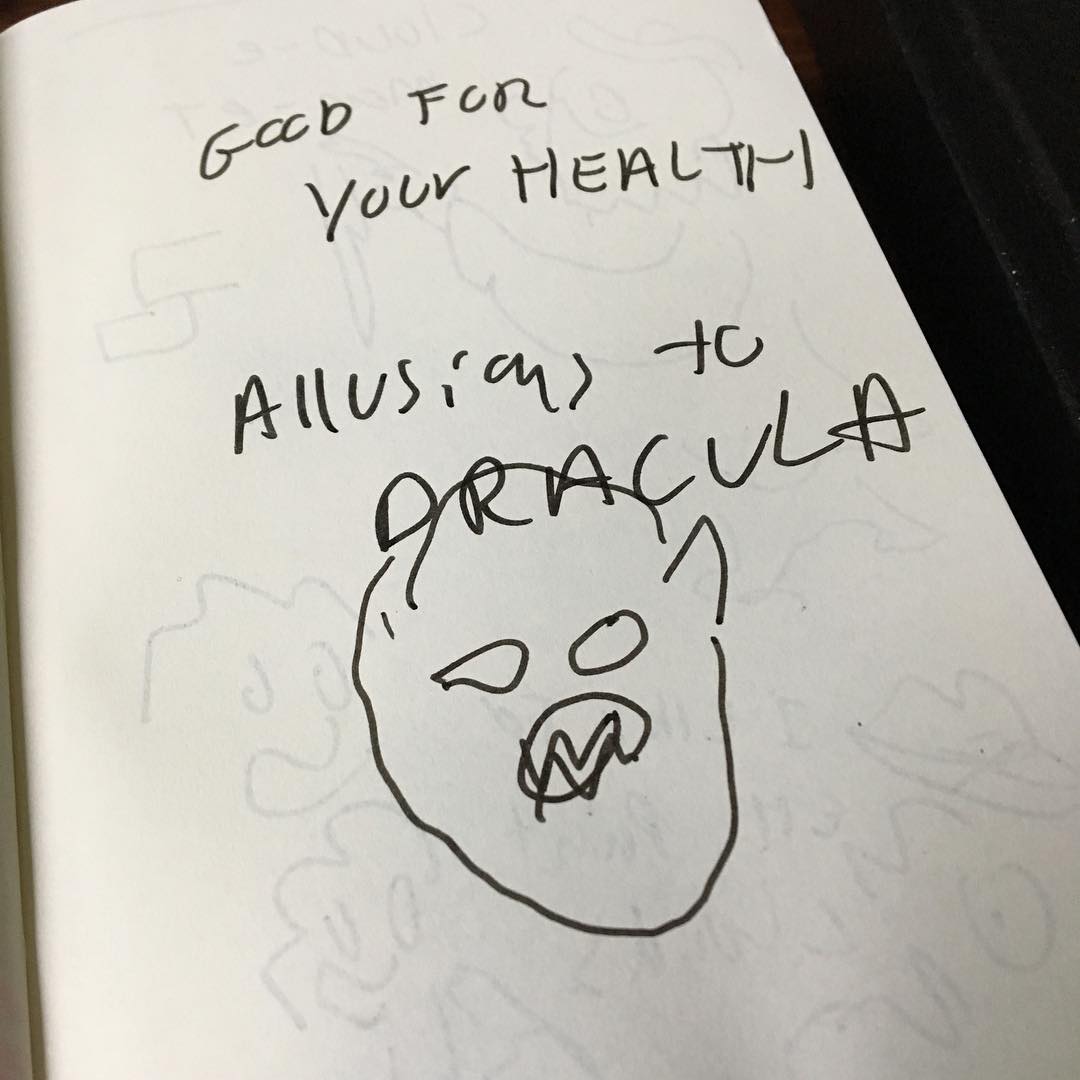 GOOD FOR
YOUr HEALTH
AllUSiONS to
DRACULA